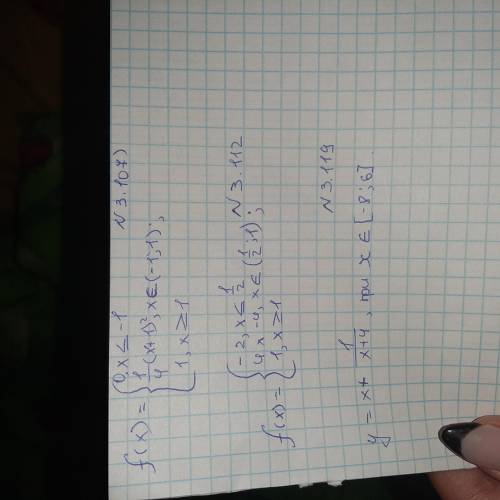 N 3.107)
f(x) = { 0, x ≤ -1
1/4 (x+1)², x ∈ (-1; 1);
1, x ≥ 1
N 3.112
f(x) = { -2, x ≤ 1/2
4x - 4, x ∈ (1/2; 1);
1, x ≥ 1
N 3.119
y = x + 1/(x+4), при x ∈ [-8; 6].